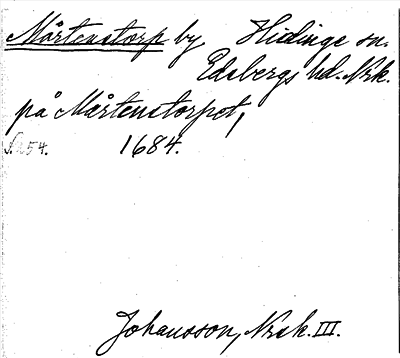 Mårtenstorp by Hidinge sn.
Edsbergs hd. Nrk.
på Mårtenstorpet,
S. 254. 1684.
Johansson, Nrsk. III.